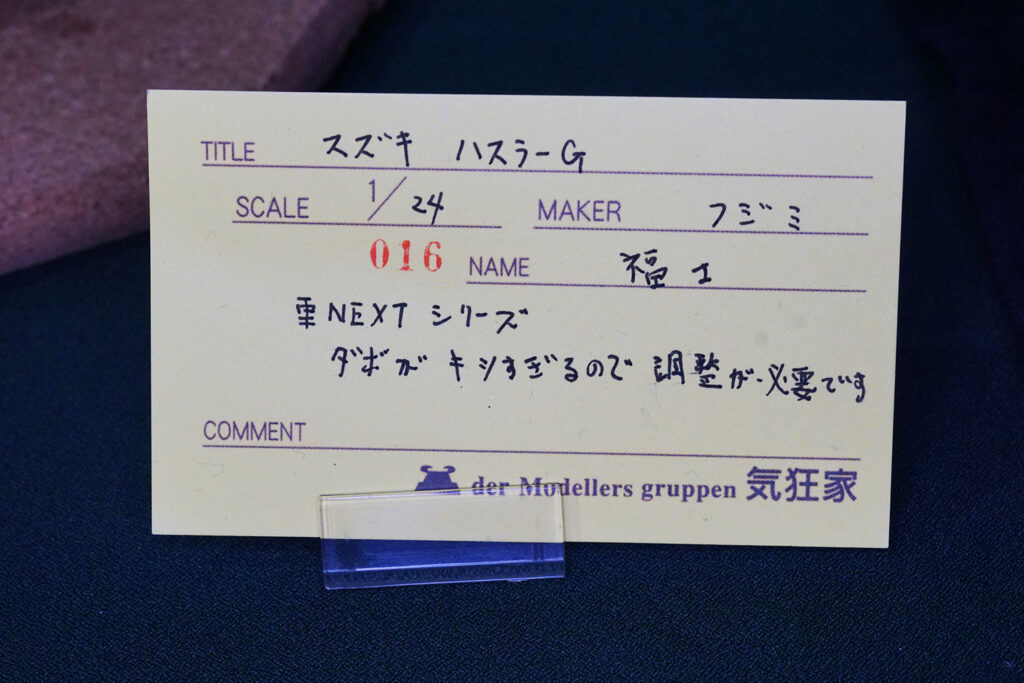 TITLE スズキ ハスラーG
SCALE 1/24 MAKER フジミ
016 NAME 福士
車NEXT シリーズ
ダボが キツすぎるので 調整が必要です
COMMENT
der Modellers gruppen 気狂家